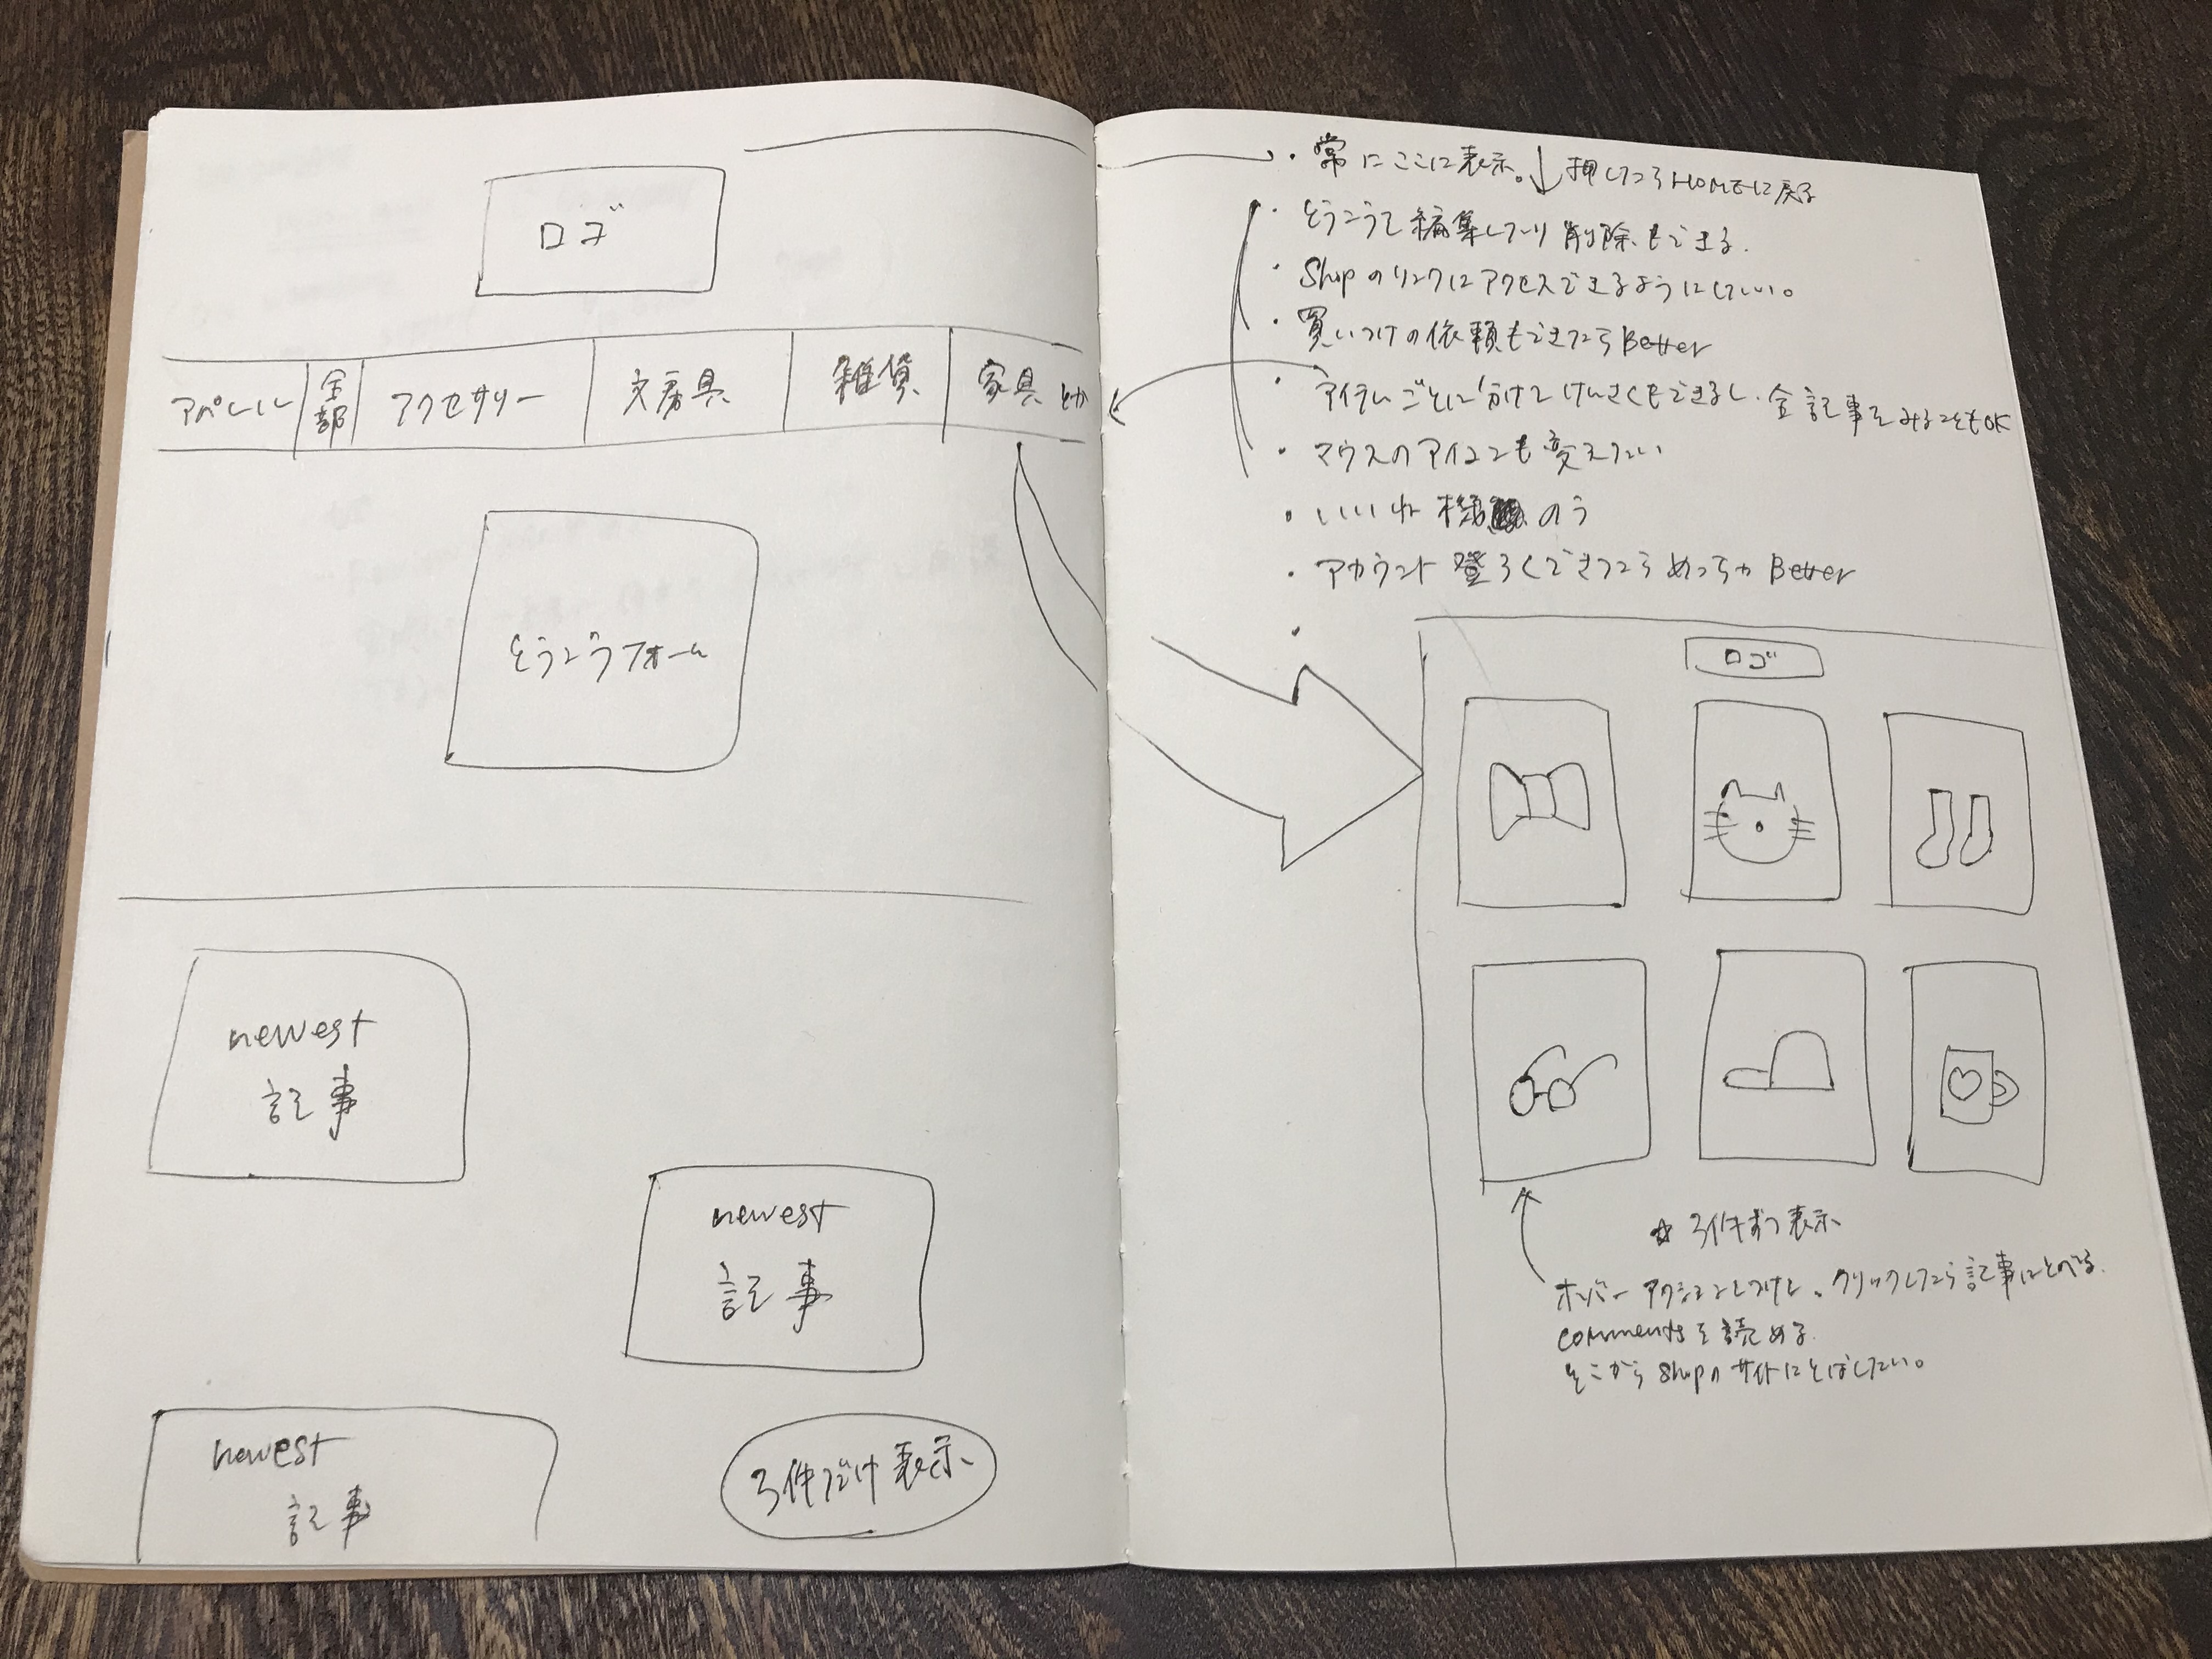 ロゴ
アパレル
全部
アクセサリー
文房具
雑貨
家具 etc
ランランクフォーム
newest
記事
newest
記事
newest
記事
3件だけ表示
・常にここに表示。
押したらHomeに戻る
編集したり削除もできる.
・Shopのリンクにアクセスできるようにしたい。
・買いつけの依頼もできたらBetter
・アイテムごとに分けていくこともできるし、全記事をみることもOK
・マウスのアイコンも変えたい
・いいね機能のみ
・アカウント登録できたらめっちゃBetter
ロゴ
☆3件ずつ表示
ホバーアクションとしては、クリックしたら記事にとんで
commentsを読める.
そこからshopのサイトにとばしたい。